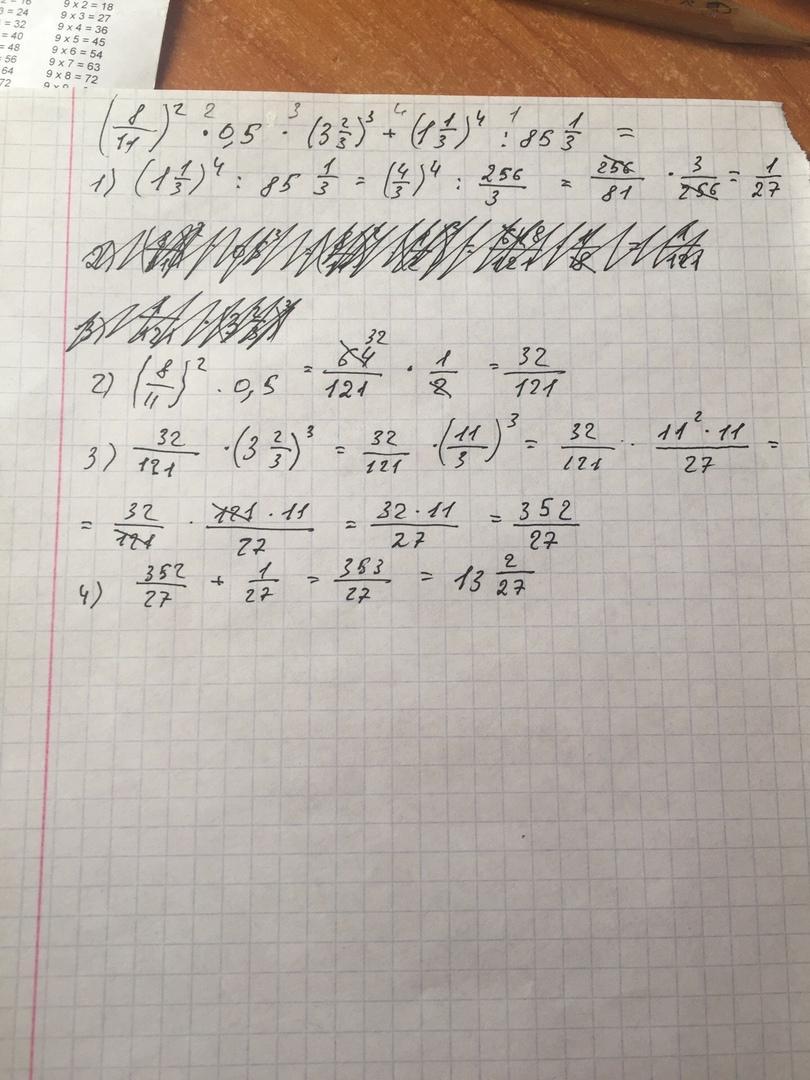 9 x 2 = 18
= 24 9 x 3 = 27
= 32 9 x 4 = 36
= 40 9 x 5 = 45
= 48 9 x 6 = 54
= 56 9 x 7 = 63
64 9 x 8 = 72
72
(8/11)² · 0,5 · (3 2/3)³ + (1 1/3)⁴ : 85 1/3 =
1) (1 1/3)⁴ : 85 1/3 = (4/3)⁴ : 256/3 = 256/81 · 3/256 = 1/27
2) (8/11)² · 0,5 = 64/121 · 1/2 = 32/121
3) 32/121 · (3 2/3)³ = 32/121 · (11/3)³ = 32/121 · 11² · 11/27 =
= 32/121 · 121 · 11/27 = 32 · 11/27 = 352/27
4) 352/27 + 1/27 = 353/27 = 13 2/27